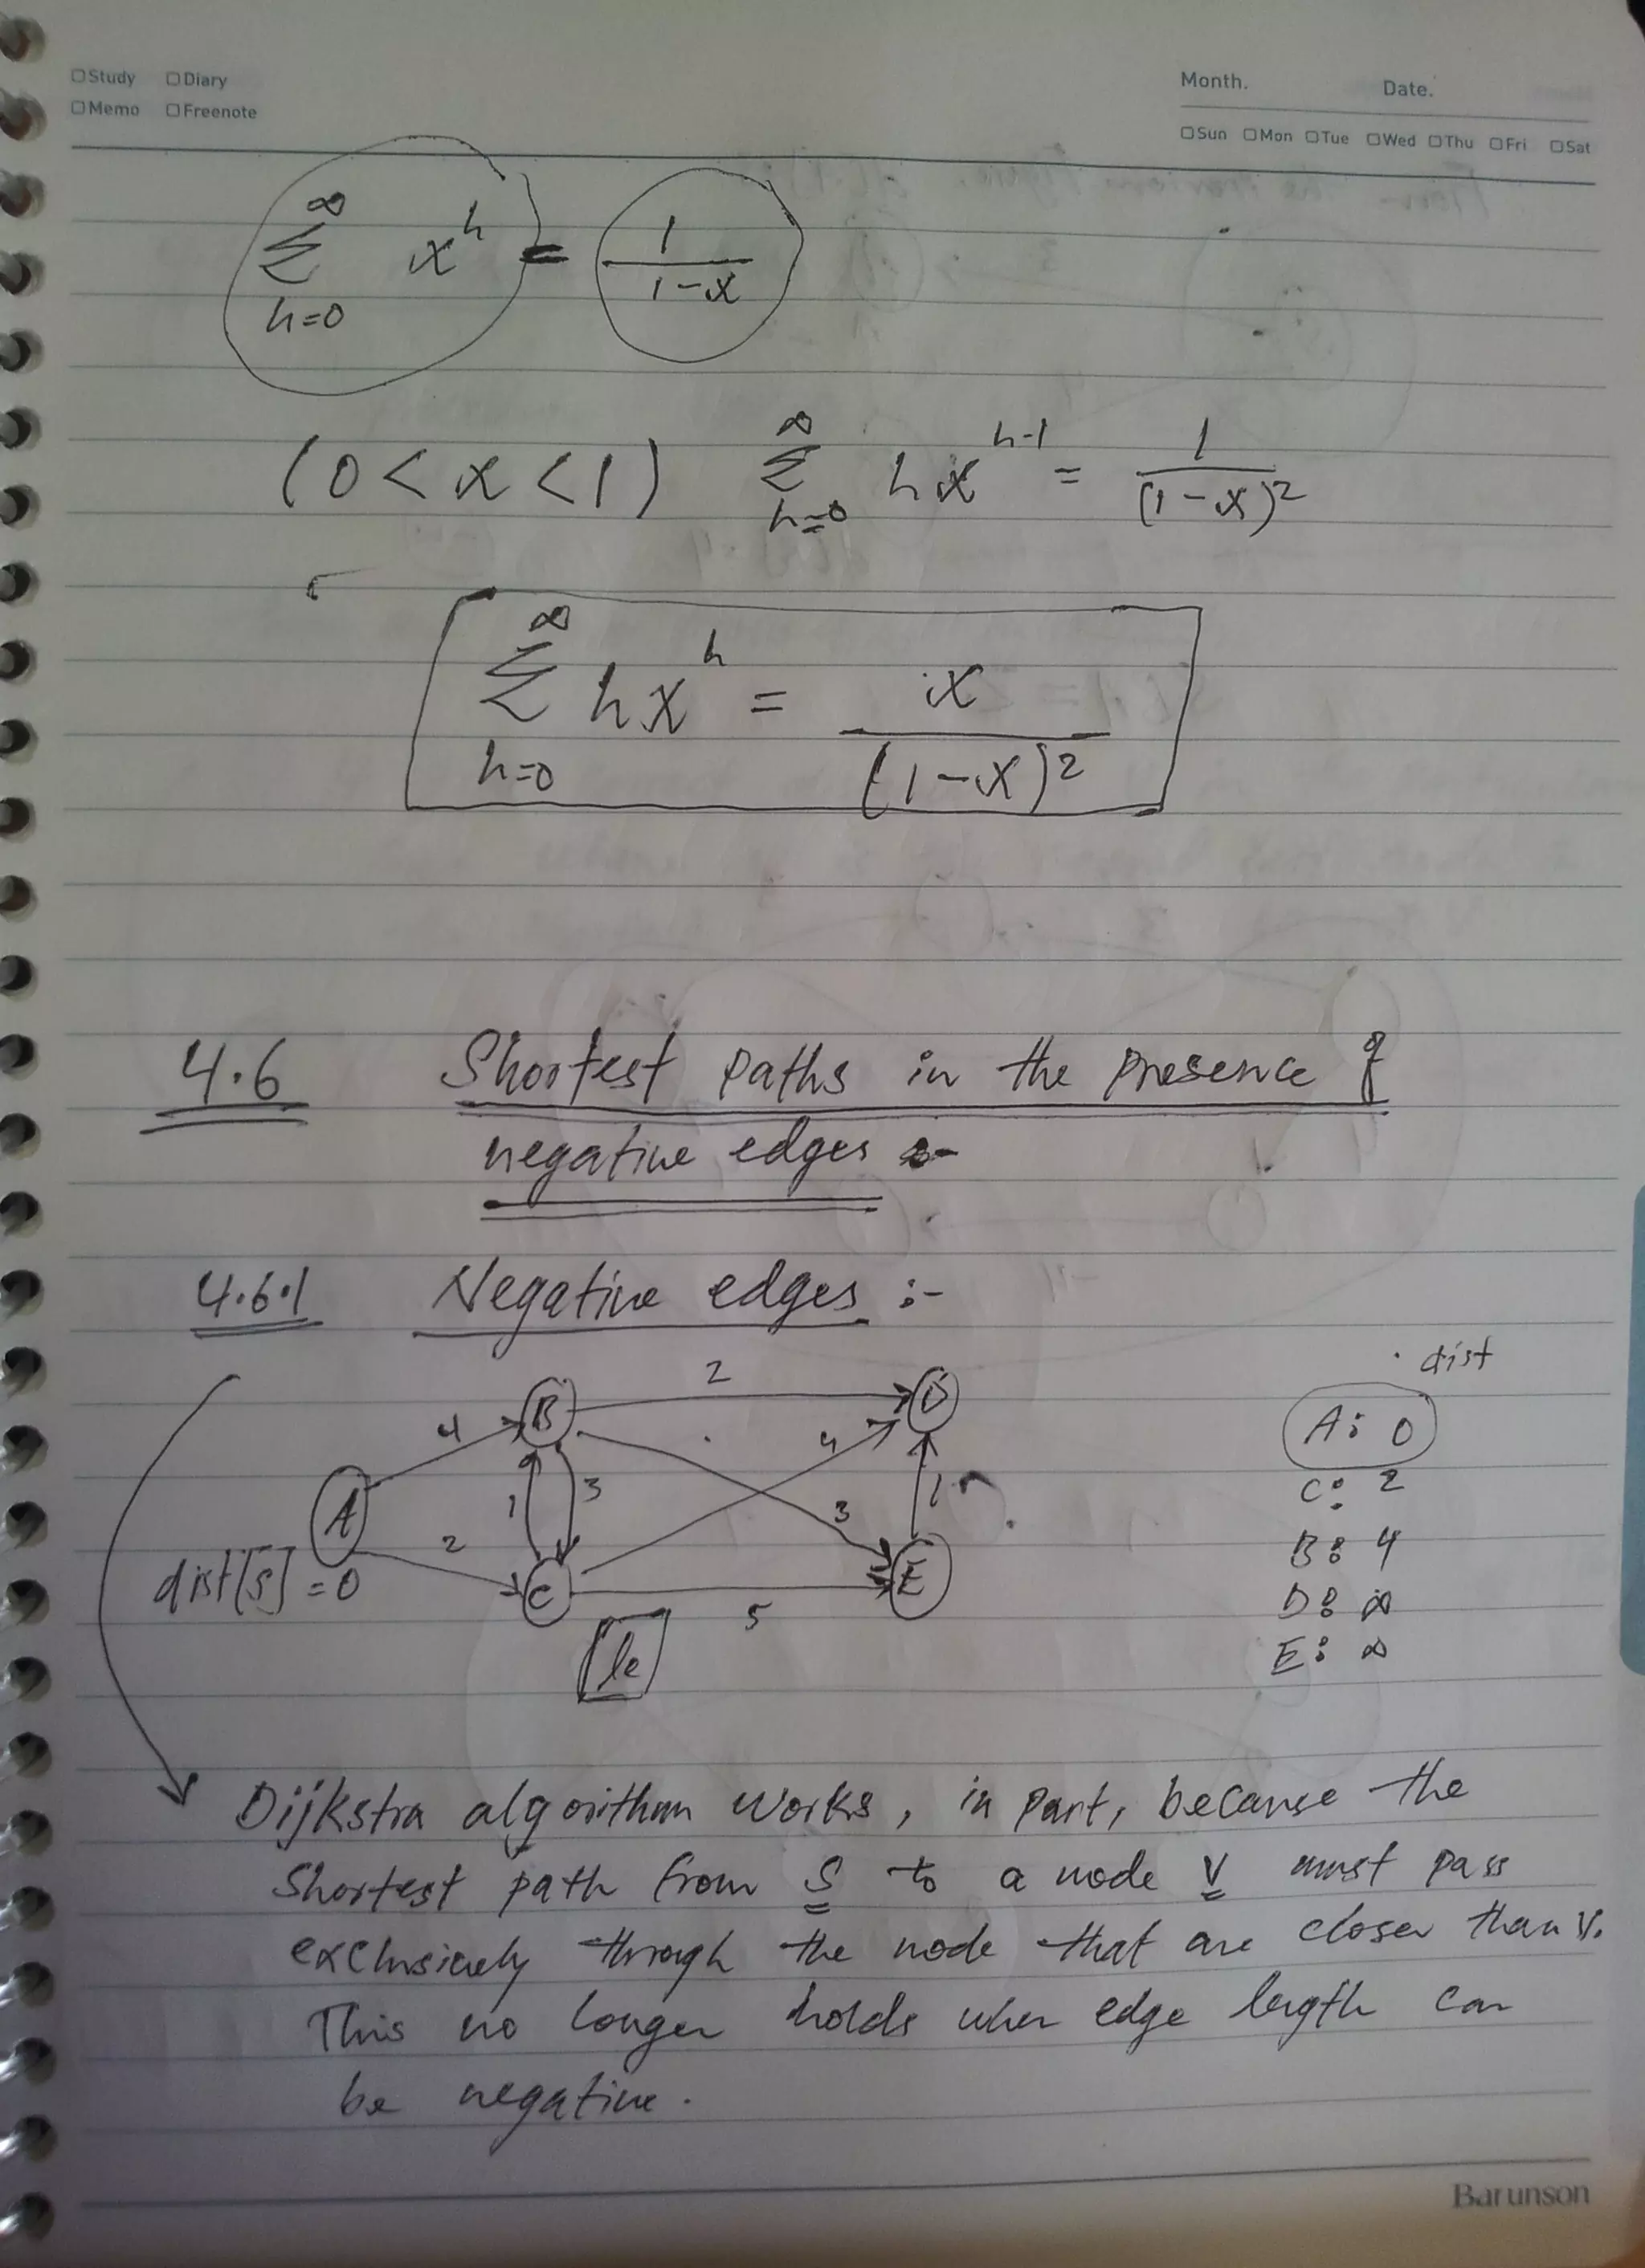 ☐Study ☐Diary
☐Memo ☐Freenote
Month. Date.
☐Sun ☐Mon ☐Tue ☐Wed ☐Thu ☐Fri ☐Sat
∞
Σ x^h = 1/(1-x)
h=0
(0<x<1) ∞
Σ hx^(h-1) = 1/(1-x)²
h=0
∞
Σ hx^h = x/(1-x)²
h=0
4.6 Shortest paths in the presence of
negative edges :-
4.6.1 Negative edges :-
dist
A: 0
C: 2
B: 4
D: ∞
E: ∞
2
B D
4 4
1 3 3 1
A
2
dist[s] = 0
C E
5
Dijkstra algorithm works, in part, because the
shortest path from S to a node V must pass
exclusively through the node that are closer than V.
This no longer holds when edge length can
be negative.
Barunson